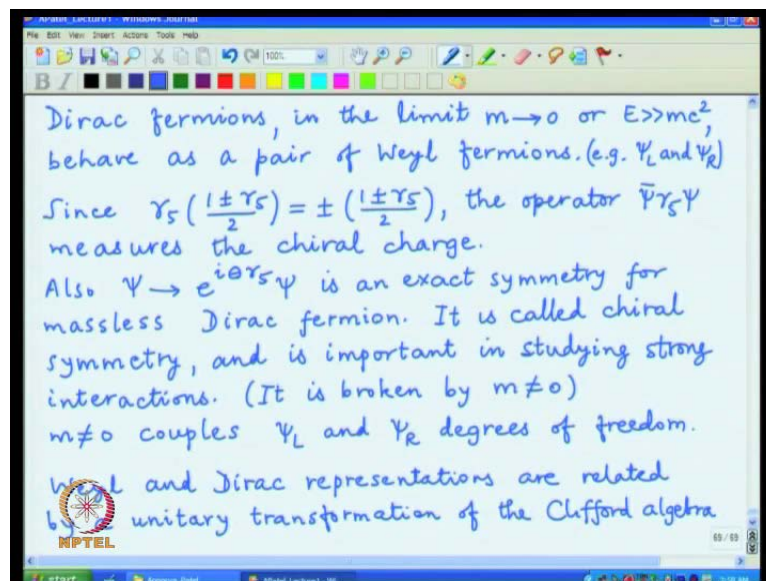 APatel_Lecture1 - Windows Journal
File Edit View Insert Actions Tools Help
100%
B I
Dirac fermions, in the limit m→0 or E>>mc²,
behave as a pair of Weyl fermions. (e.g. Ψ_L and Ψ_R)
Since γ₅ ((1±γ₅)/2) = ± ((1±γ₅)/2), the operator Ψ̄γ₅Ψ
measures the chiral charge.
Also Ψ → e^{iθγ₅} Ψ is an exact symmetry for
massless Dirac fermion. It is called chiral
symmetry, and is important in studying strong
interactions. (It is broken by m≠0)
m≠0 couples Ψ_L and Ψ_R degrees of freedom.
Weyl and Dirac representations are related
by unitary transformation of the Clifford algebra
NPTEL
69/69
start